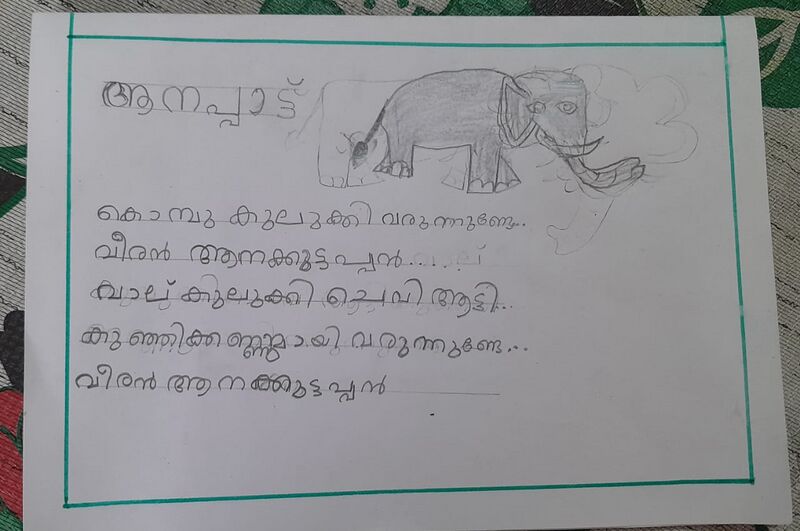 ആനപ്പാട്ട്
കൊമ്പു കുലുക്കി വരുന്നുണ്ടേ..
വീരൻ ആനക്കുട്ടപ്പൻ......
വാല് കുലുക്കി ചെവി ആട്ടി..
കുഞ്ഞിക്കണ്ണുമായി വരുന്നുണ്ടേ...
വീരൻ ആനക്കുട്ടപ്പൻ